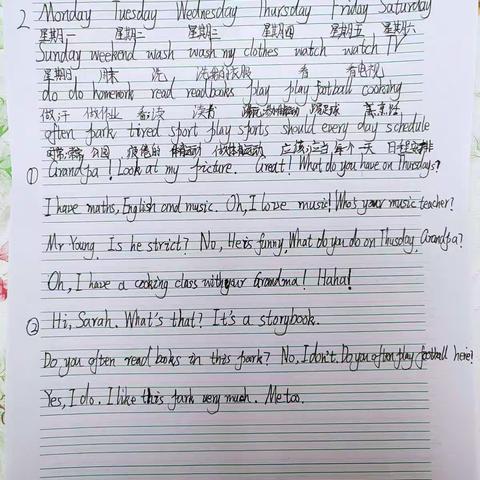 2 Monday Tuesday Wednesday Thursday Friday Saturday
星期一 星期二 星期三 星期四 星期五 星期六
Sunday weekend wash wash my clothes watch watch TV
星期日 周末 洗 洗我的衣服 看 看电视
do do homework read read books play play football cooking
做;干 做作业 看;读 读书 踢足球 烹饪
often park tired sport play sports should every day schedule
时常;常常 公园 疲倦的 体育运动 做体育运动 应该;应当 每个 天 日程安排
① Grandpa! Look at my picture. Great! What do you have on Thursdays?
I have maths, English and music. Oh, I love music! Who's your music teacher?
Mr Young. Is he strict? No, He is funny. What do you do on Thusday, Grandpa?
Oh, I have a cooking class with your Grandma! Haha!
② Hi, Sarah. What's that? It's a storybook.
Do you often read books in this park? No, I don't. Do you often play football here?
Yes, I do. I like this park very much. Me too.